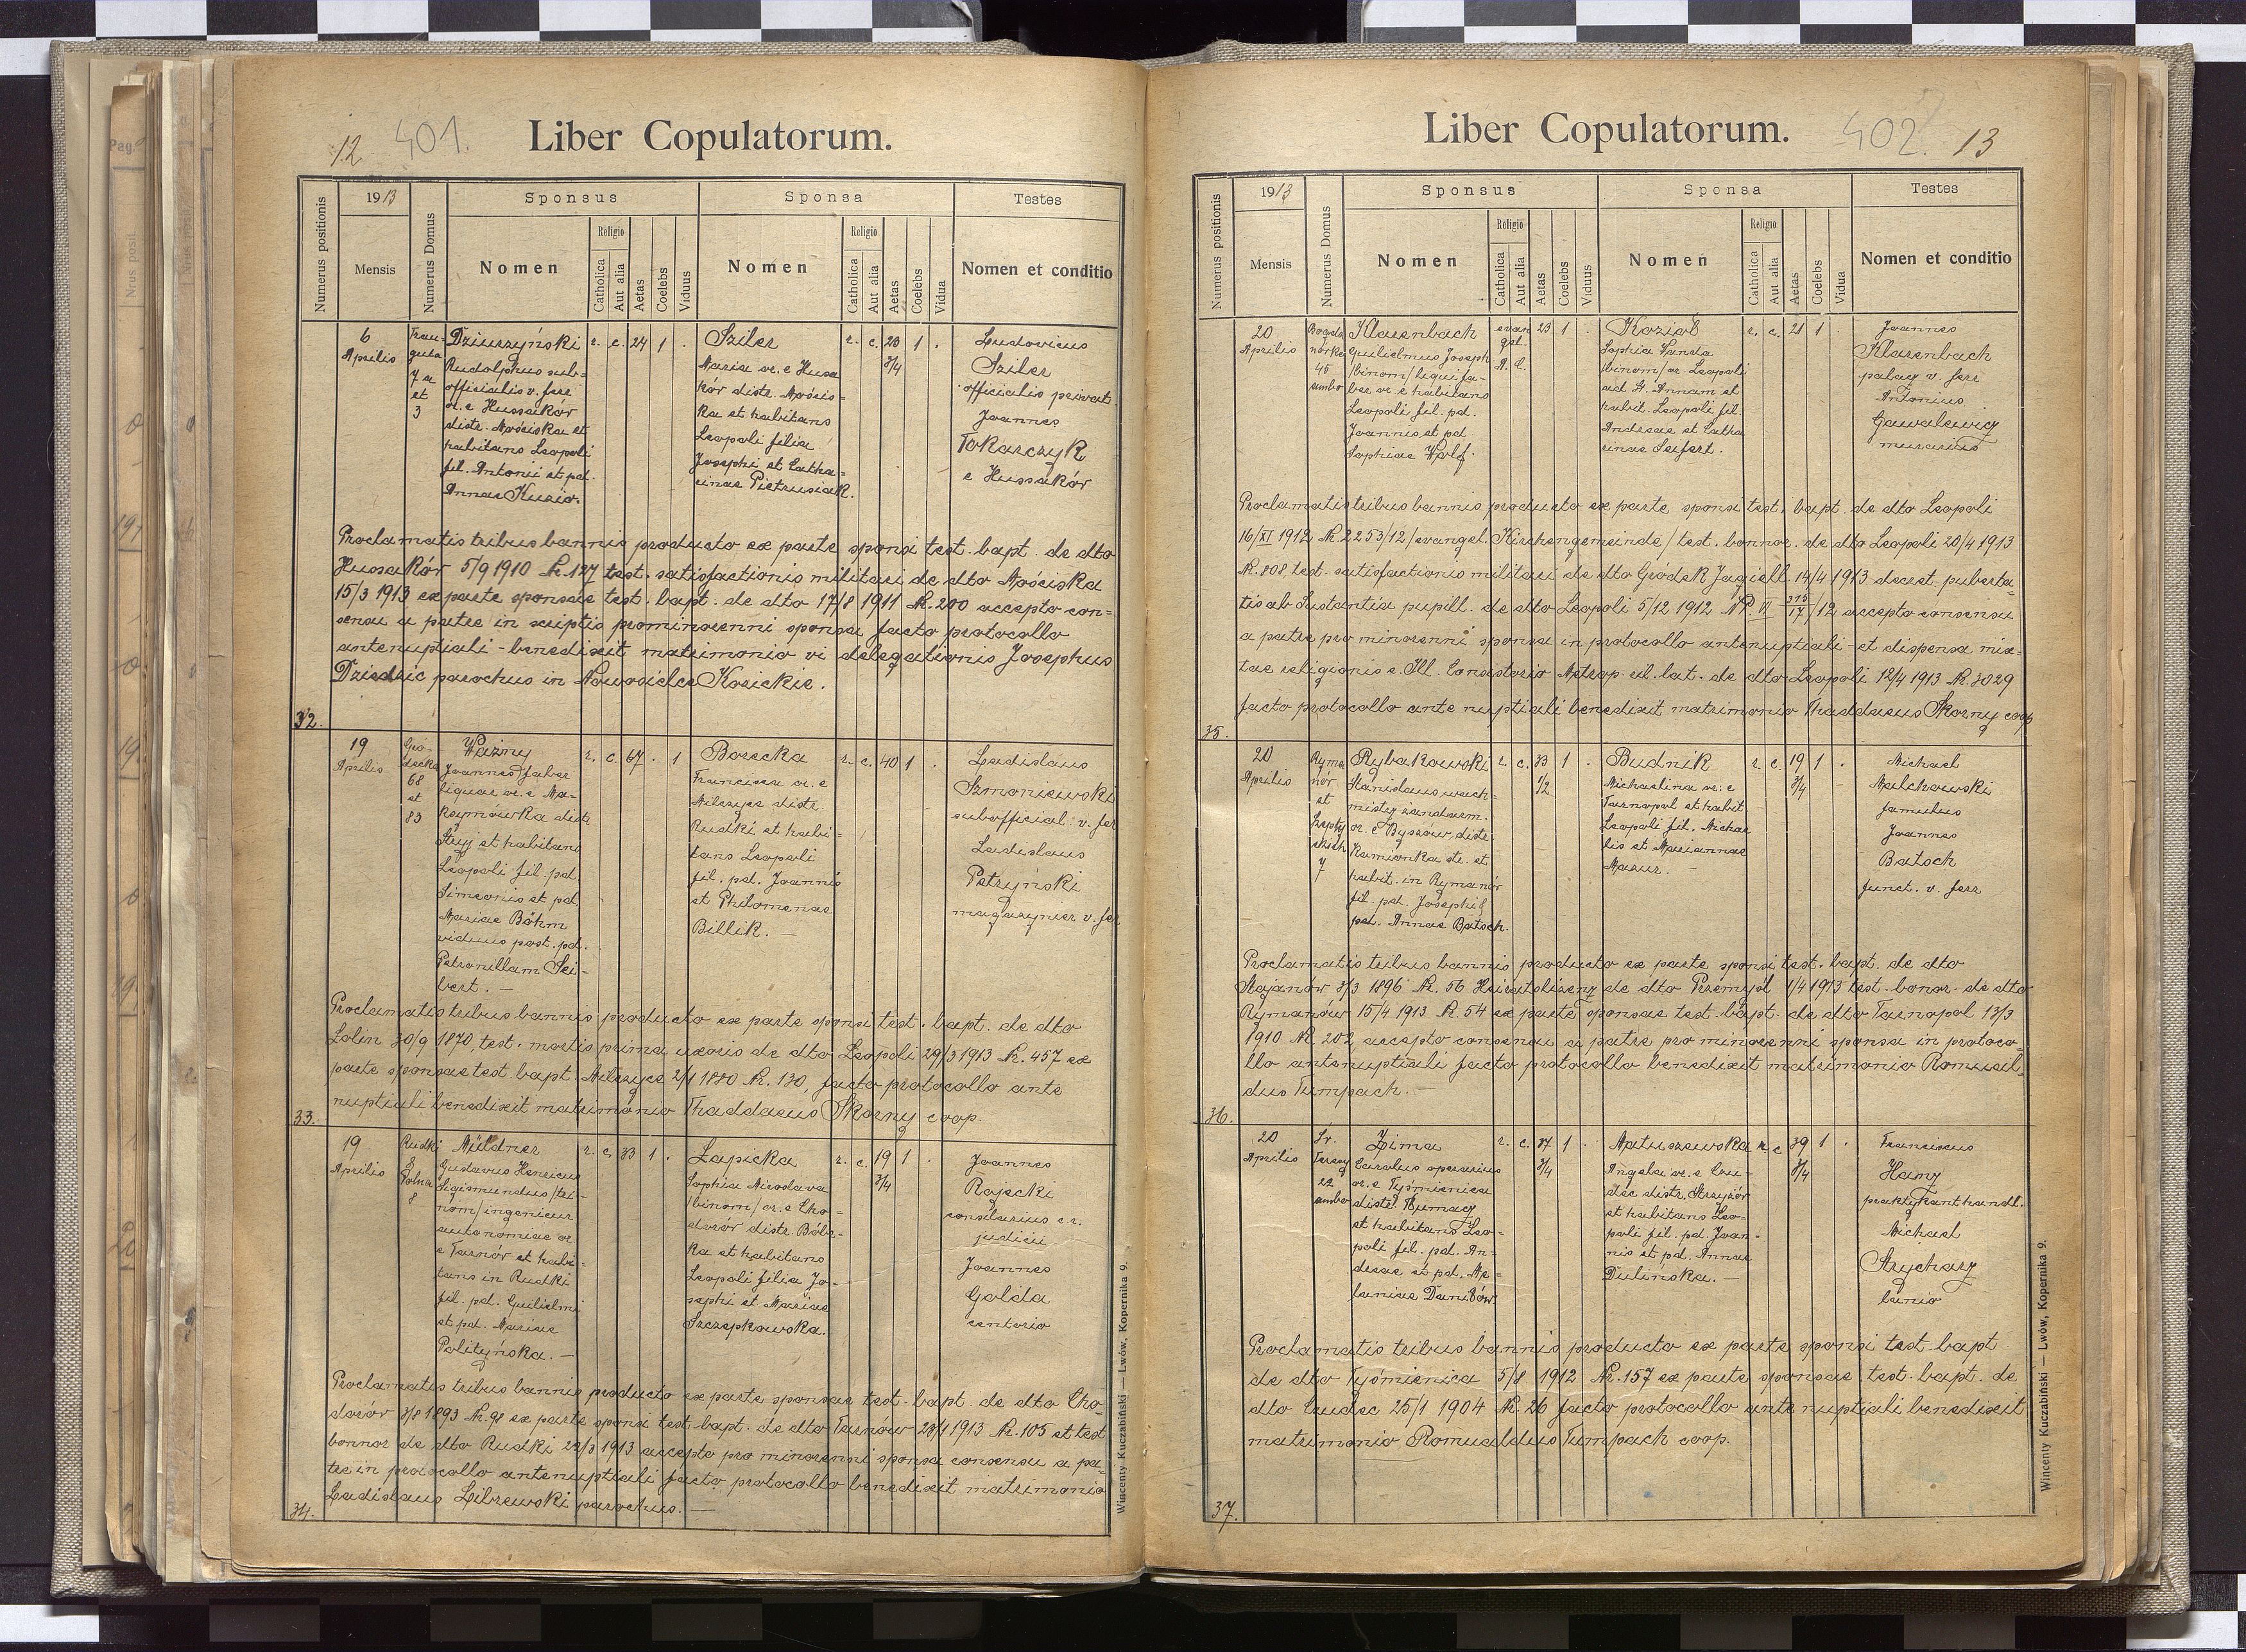 12 401.
Liber Copulatorum.
Numerus positionis
1913
Mensis
Numerus Domus
Sponsus
Nomen
Religio
Catholica
Aut alia
Aetas
Coelebs
Viduus
Sponsa
Nomen
Religio
Catholica
Aut alia
Aetas
Coelebs
Vidua
Testes
Nomen et conditio
32.
6
Aprilis
Trau-
gutta
7 a
et
3
Dziuszyński
Rudolphus sub-
officialis v. ferr
or. e Hussaków
distr. Mościska et
habitans Leopoli
fil. Antonii et pd.
Annae Kusio.
r. c. 24 1 .
Sziler
Maria or. e Hussa
ków distr. Mościs-
ka et habitans
Leopoli filia
Josephi et Catha=
rinae Pietrusiak.
r. c. 23 3/4 1 .
Ludovicus
Sziler
officialis privat.
Joannes
Tokarczyk
e Hussaków
Proclamatis tribus bannis producto ex parte sponsi test. bapt. de dto
Hussaków 5/9 1910 Nr. 127 test. satisfactionis militari de dto Mościska
15/3 1913 ex parte sponsae test. bapt. de dto 17/8 1911 Nr. 200 accepto con=
sensu a patre in scriptis pro minorenni sponsa facto protocollo
antenuptiali - benedixit matrimonio vi delegationis Josephus
Dziedzic parochus in Nowosielce Kozickie.
33.
19
Aprilis
Gro-
decka
68
et
83
Ważny
Joannes faber
liguar. or. e Ma-
ksymówka distr
Stryj et habitans
Leopoli fil. pd.
Simeonis et pd.
Mariae Böhm
viduus post. pd.
Petronillam Sei-
bert. —
r. c. 67 . 1
Borecka
Francisca or. e
Milczyce distr.
Rudki et habi-
tans Leopoli
fil. pd. Joannis
et Philomenae
Billik. —
r. c. 40 1 .
Ladislaus
Szmoniewski
subofficial. v. fer
Ladislaus
Petryński
magazynier v. fer
Proclamatis tribus bannis producto ex parte sponsi test. bapt. de dto
30/9 1870, test. mortis prima uxoris de dto Leopoli 29/3 1913 Nr. 457 ex
parte sponsae test bapt. Milczyce 2/1 1880 Nr. 130, facto protocollo ante
nuptiali benedixit matrimonio Thaddaeus Skorny coop.
34.
19
Aprilis
Rudki
8
Polna
8
Müldner
Gustavus Henricus
Sigismundus/tri-
nom/ingenieur
autonomiae or
e Tarnów et habi-
tans in Rudki
fil. pd. Guilielmi
et pd. Mariae
Polityńska. —
r. c. 33 1 .
Łapicka
Sophia Miroslava
/binom/ or. e Cho=
dorów distr. Bóbr-
ka et habitans
Leopoli filia Jo-
sephi et Mariae
Szczepkowska.
r. c. 19 3/4 1 .
Joannes
Rajecki
consiliarius c.r.
judicii
Joannes
Golda
cantorio
Proclamatis tribus bannis producto ex parte sponsae test. bapt. de dto Cho-
dorów 3/8 1893 Nr. 98 ex parte sponsi test bapt. de dto Tarnów 28/1 1913 Nr. 105 et test
bannor de dto Rudki 22/3 1913 accepto pro minorenni sponsa consensu a pa-
tre in protocollo antenuptiali facto protocollo benedixit matrimonio
Ladislaus Librewski parochus. —
Wincenty Kuczabiński — Lwów, Kopernika 9.
Liber Copulatorum.
402. 13
Numerus positionis
1913
Mensis
Numerus Domus
Sponsus
Nomen
Religio
Catholica
Aut alia
Aetas
Coelebs
Viduus
Sponsa
Nomen
Religio
Catholica
Aut alia
Aetas
Coelebs
Vidua
Testes
Nomen et conditio
35.
20
Aprilis
Bogda
nówka
45
ambo
Klarenbach
Guilielmus Joseph
/binom/ligni fa-
ber or. e habitans
Leopoli fil. pd.
Joannis et pd.
Sophiae Wolf.
evan
gel.
A. C.
23 1 .
Kozioł
Sophia Vanda
/binom/or. Leopoli
ad St. Annam et
habit. Leopoli fil.
Andreae et Catha
rinae Seifert.
r. c. 21 1 .
Joannes
Klarenbach
palacz v. ferr
Antonius
Gawalewicz
murarius
Proclamatis tribus bannis producto ex parte sponsi test. bapt. de dto Leopoli
16/XI 1912 Nr. 2253/12/evangel. Kirchengemeinde/test. bannor. de dto Leopoli 20/4 1913
Nr. 808, test. satisfactionis militari de dto Gródek Jagiell. 14/4 1913 decret. puberta-
tis ab Instantia pupill. de dto Leopoli 5/12 1912 NP. VI 315/17/12 accepto consensu
a patre pro minorenni sponsa in protocollo antenuptiali - et dispensa mix-
tae religionis e. Ill. Consistorio Metrop. rit. lat. de dto Leopoli 12/4 1913 Nr. 3029
facto protocollo ante nuptiali benedixit matrimonio Thaddaeus Skorny coop
36.
20
Aprilis
Ryma
nów
et
Szepty
ckich
7
Rybakowski
Stanislaus wach-
mistrz żandarm.
or. e Byszów distr.
Kamionka str. et
habit. in Rymanów
fil. pd. Josephi &
pd. Annae Batoch.
r. c. 33 1/2 1 .
Budnik
Michaelina or. e
Tarnopol et habit.
Leopoli fil. Michae
lis et Mariannae
Mazur.
r. c. 19 3/4 1 .
Michael
Malchowski
famulus
Joannes
Batoch
funct. v. ferr
Proclamatis tribus bannis producto ex parte sponsi test. bapt. de dto
Stojanów 3/3 1896 Nr. 56 Heiratslizenz de dto Przemyśl 1/4 1913 test. bannor. de dto
Rymanów 15/4 1913 Nr. 54 ex parte sponsae test. bapt. de dto Tarnopol 13/3
1910 Nr. 202, accepto consensu a patre pro minorenni sponsa in protoco-
llo antenuptiali facto protocollo benedixit matrimonio Romual-
dus Tumpach. —
37.
20
Aprilis
Św.
Teresy
22
ambo
Zima
Carolus operarius
or. e Tyśmienica
distr. Tłumacz
et habitans Leo-
poli fil. pd. An-
dreae et pd. Me-
laniae Daniłów.
r. c. 37 3/4 1 .
Matuszewska
Angela or. e Czu-
dec distr. Strzyżów
et habitans Leo-
poli fil. pd. Joan-
nis et pd. Annae
Dulińska. —
r c 39 3/4 1 .
Franciscus
Hanz
praktykant handl.
Michael
Strycharz
lanio
Proclamatis tribus bannis producto ex parte sponsi test. bapt
de dto Tyśmienica 5/8 1912 Nr. 157 ex parte sponsae test. bapt. de
dto Czudec 25/1 1904 Nr. 26 facto protocollo ante nuptiali benedixit
matrimonio Romualdus Tumpach coop.
Wincenty Kuczabiński — Lwów, Kopernika 9.